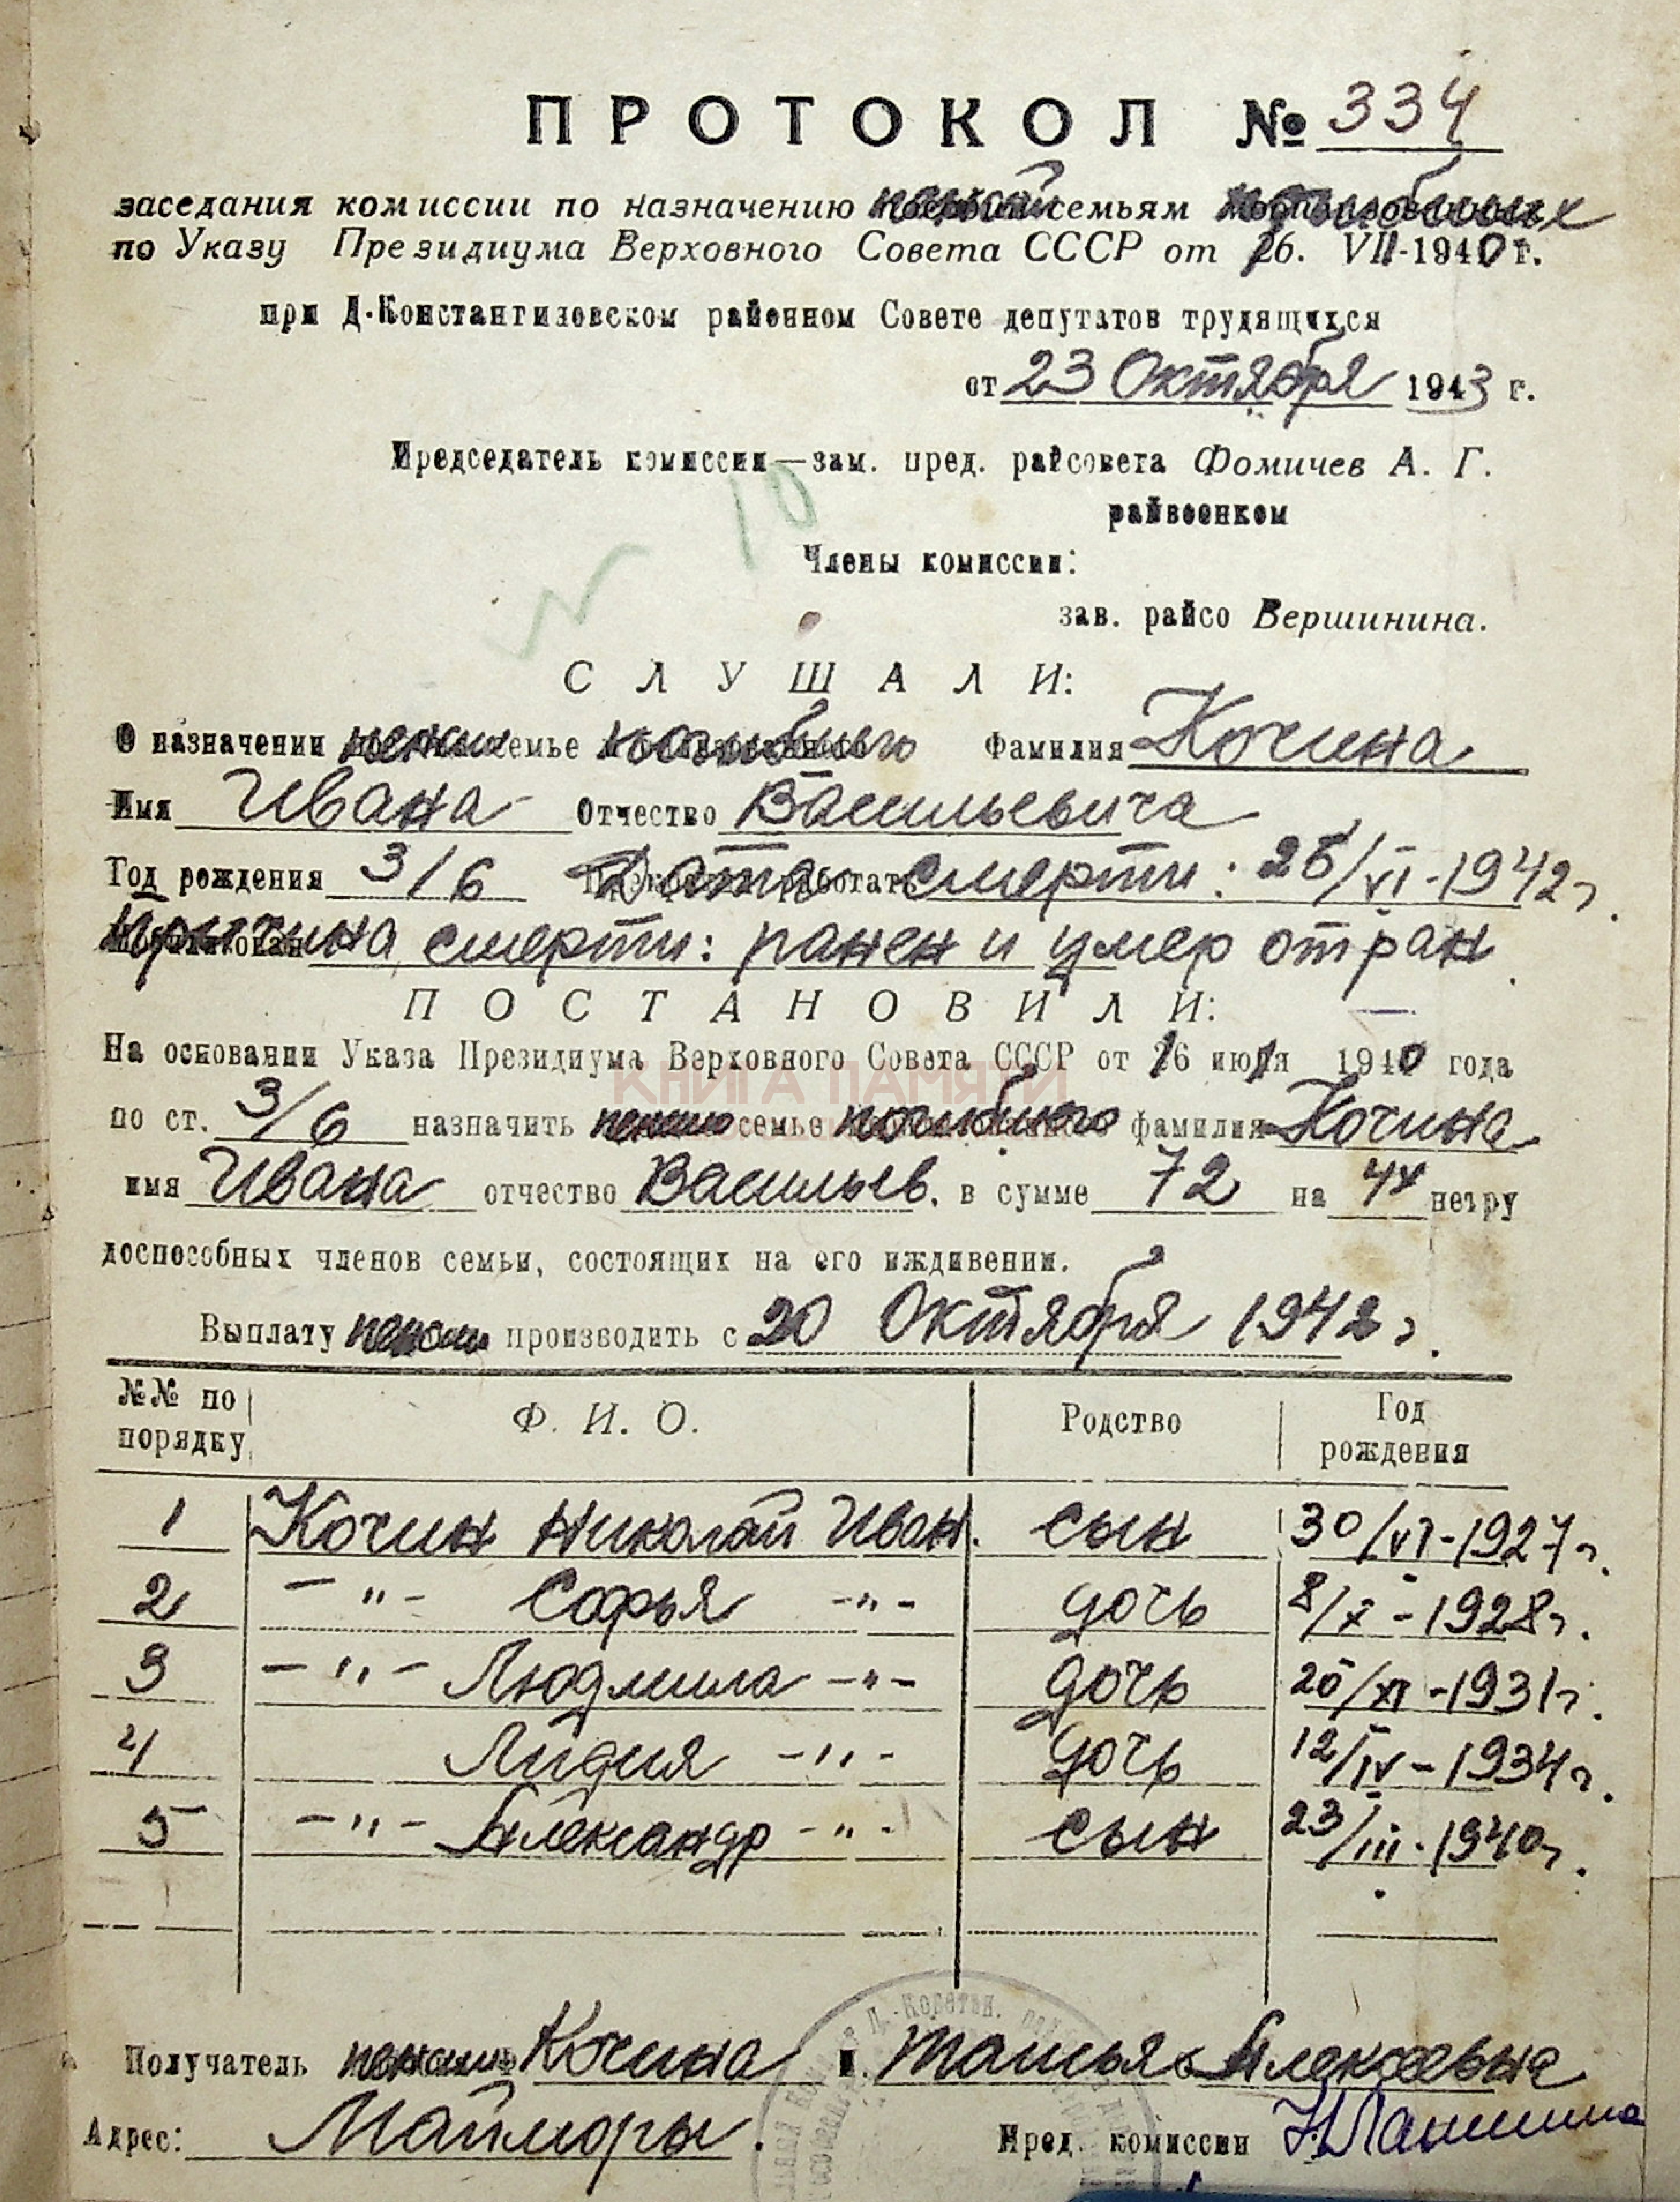 ПРОТОКОЛ № 334
заседания комиссии по назначению пенсий семьям погибших
по Указу Президиума Верховного Совета СССР от 16. VII-1940 г.
при Д.Константиновском районном Совете депутатов трудящихся
от 23 Октября 1943 г.
Председатель комиссии—зам. пред. райсовета Фомичев А. Г.
райвоенком
10
Члены комиссии:
зав. райсо Вершинина.
СЛУШАЛИ:
О назначении пенсии семье погибшего Фамилия Кочина
Имя Ивана Отчество Васильевича
Год рождения 3/6 Дата смерти: 25/VI-1942 г.
Причина смерти: ранен и умер от ран
ПОСТАНОВИЛИ:
На основании Указа Президиума Верховного Совета СССР от 16 июля 1940 года
КНИГА ПАМЯТИ
по ст. 3/6 назначить пенсию семье погибшего фамилия Кочина
имя Ивана отчество Васильев. в сумме 72 на 4х нетру
доспособных членов семьи, состоящих на его иждивении.
Выплату пенсии производить с 20 Октября 1942 г.
№№ по порядку Ф. И. О. Родство Год рождения
1 Кочин Николай Иван. сын 30/VI-1927 г.
2 -"- Софья -"- дочь 8/X-1928 г.
3 -"- Людмила -"- дочь 25/XI-1931 г.
4 Лидия -"- дочь 12/IV-1934 г.
5 -"- Александр -"- сын 23/III-1940 г.
Получатель пенсии Кочина Татьяна Алексеевна
Адрес: Майморы. Пред. комиссии